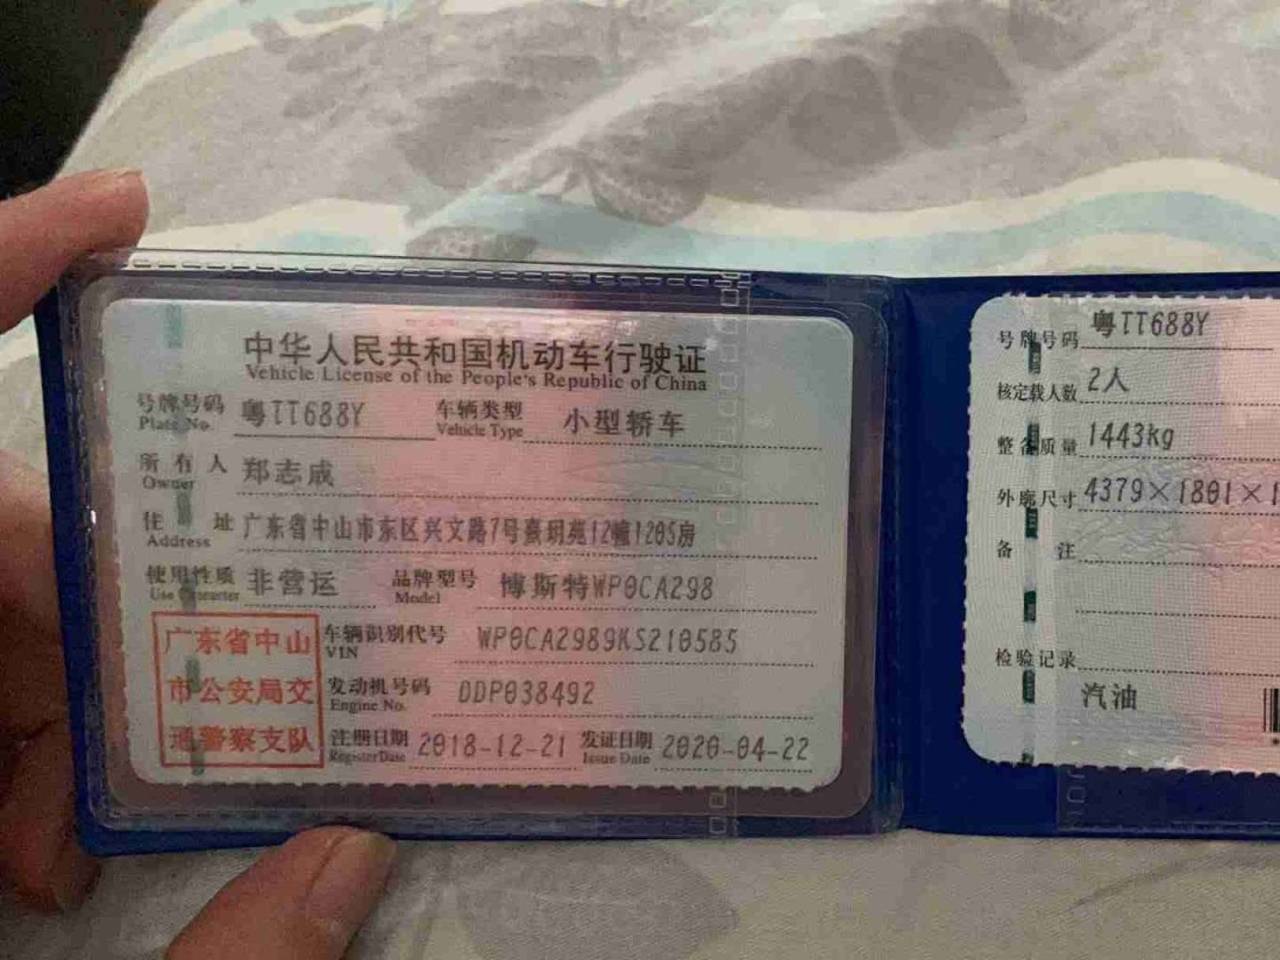 中华人民共和国机动车行驶证
Vehicle License of the People's Republic of China
号牌号码 粤TT688Y 车辆类型 小型轿车
Plate No. Vehicle Type
所有人 郑志成
Owner
住址 广东省中山市东区兴文路7号熹玥苑12幢1205房
Address
使用性质 非营运 品牌型号 博斯特WP0CA298
Use Character Model
广东省中山
市公安局交
通警察支队
车辆识别代号 WP0CA2989KS210585
VIN
发动机号码 DDP038492
Engine No.
注册日期 2018-12-21 发证日期 2020-04-22
Register Date Issue Date
号牌号码 粤TT688Y
核定载人数 2人
整备质量 1443kg
外廓尺寸 4379×1801×1
备注
检验记录
汽油